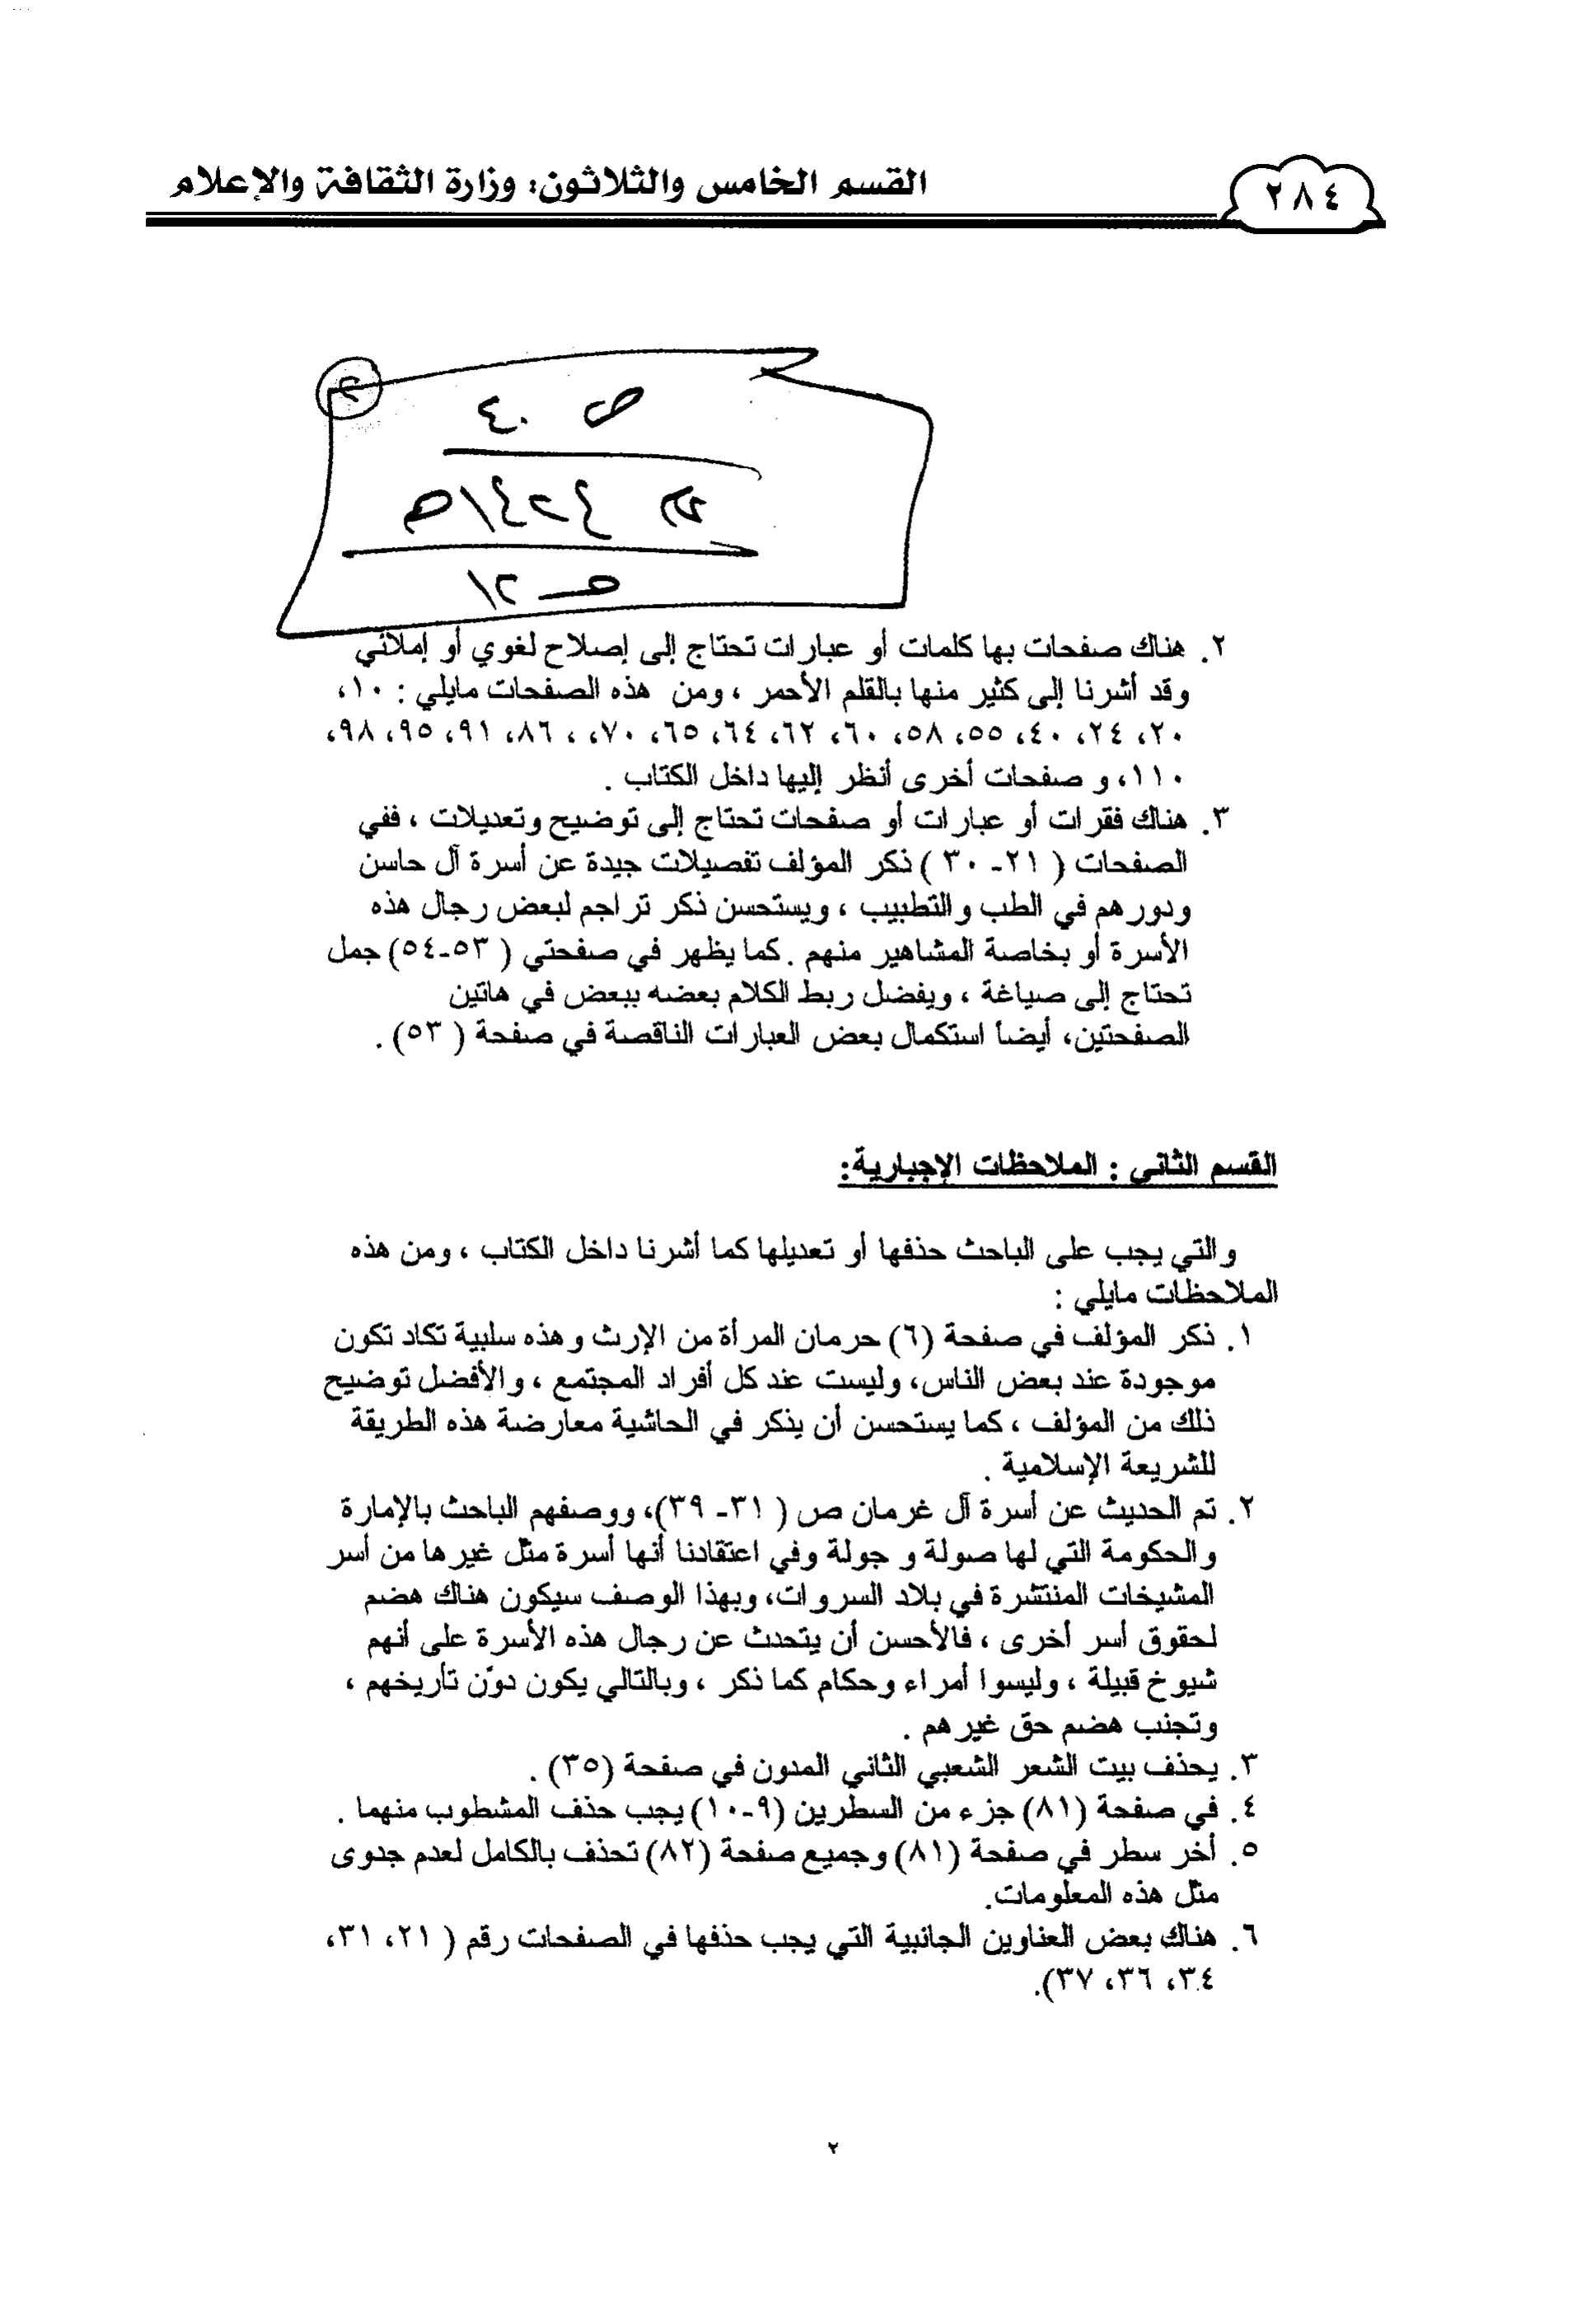 القسم الخامس والثلاثون: وزارة الثقافة والإعلام
٢٨٤
٢
ص ٤٠
١٤٢٤هـ
١٢
٢. هناك صفحات بها كلمات أو عبارات تحتاج إلى إصلاح لغوي أو إملائي
وقد أشرنا إلى كثير منها بالقلم الأحمر ، ومن هذه الصفحات مايلي : ١٠،
٢٠، ٢٤، ٤٠، ٥٥، ٥٨، ٦٠، ٦٢، ٦٤، ٦٥، ٧٠، ، ٨٦، ٩١، ٩٥، ٩٨،
١١٠، و صفحات أخرى أنظر إليها داخل الكتاب .
٣. هناك فقرات أو عبارات أو صفحات تحتاج إلى توضيح وتعديلات ، ففي
الصفحات ( ٢١- ٣٠ ) ذكر المؤلف تفصيلات جيدة عن أسرة آل حاسن
ودورهم في الطب والتطبيب ، ويستحسن ذكر تراجم لبعض رجال هذه
الأسرة أو بخاصة المشاهير منهم . كما يظهر في صفحتي ( ٥٣-٥٤) جمل
تحتاج إلى صياغة ، ويفضل ربط الكلام بعضه ببعض في هاتين
الصفحتين، أيضاً استكمال بعض العبارات الناقصة في صفحة ( ٥٣) .
القسم الثاني : الملاحظات الإجبارية:
والتي يجب على الباحث حذفها أو تعديلها كما أشرنا داخل الكتاب ، ومن هذه
الملاحظات مايلي :
١. ذكر المؤلف في صفحة (٦) حرمان المرأة من الإرث وهذه سلبية تكاد تكون
موجودة عند بعض الناس، وليست عند كل أفراد المجتمع ، والأفضل توضيح
ذلك من المؤلف ، كما يستحسن أن يذكر في الحاشية معارضة هذه الطريقة
للشريعة الإسلامية .
٢. تم الحديث عن أسرة آل غرمان ص ( ٣١- ٣٩)، ووصفهم الباحث بالإمارة
والحكومة التي لها صولة و جولة وفي اعتقادنا أنها أسرة مثل غيرها من أسر
المشيخات المنتشرة في بلاد السروات، وبهذا الوصف سيكون هناك هضم
لحقوق أسر أخرى ، فالأحسن أن يتحدث عن رجال هذه الأسرة على أنهم
شيوخ قبيلة ، وليسوا أمراء وحكام كما ذكر ، وبالتالي يكون دوّن تأريخهم ،
وتجنب هضم حق غيرهم .
٣. يحذف بيت الشعر الشعبي الثاني المدون في صفحة (٣٥) .
٤. في صفحة (٨١) جزء من السطرين (٩-١٠) يجب حذف المشطوب منهما .
٥. أخر سطر في صفحة (٨١) وجميع صفحة (٨٢) تحذف بالكامل لعدم جدوى
مثل هذه المعلومات.
٦. هناك بعض العناوين الجانبية التي يجب حذفها في الصفحات رقم ( ٢١، ٣١،
٣٤، ٣٦، ٣٧).
٢